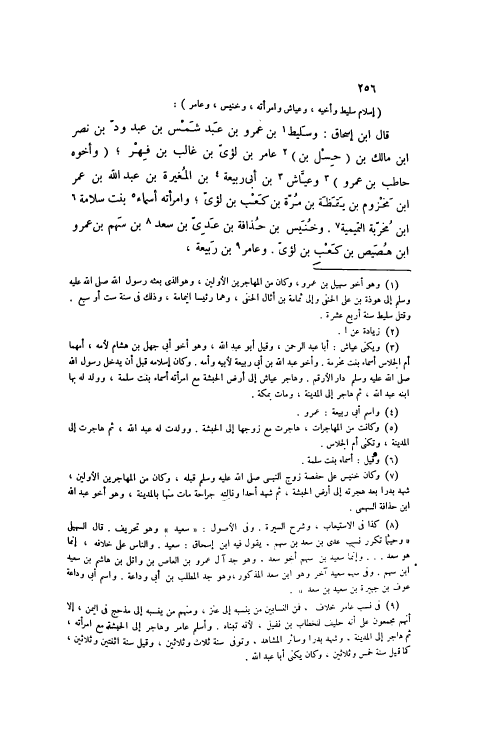 ٢٥٦
( إسلام سليط وأخيه ، وعياش وامرأته ، وخنيس ، وعامر ) :
قال ابن إسحاق : وسليط ١ بن عمرو بن عبد شمس بن عبد ود ّ بن نصر
ابن مالك بن ( حِسْل بن ) ٢ عامر بن لؤىّ بن غالب بن فِهْر ؛ ( وأخوه
حاطب بن عمرو ) ٣ وعيَّاش ٣ بن أبى ربيعة ٤ بن المُغيرة بن عبد الله بن عمر
ابن مخزوم بن يَقَظة بن مُرّة بن كَعْب بن لؤىّ ؛ وامرأته أسماء ٥ بنت سلامة ٦
ابن مُخرّبة التميمية ٧ . وخُنَيس بن حُذافة بن عَدِىّ بن سعد ٨ بن سَهم بن عمرو
ابن هُصَيص بن كَعْب بن لؤىّ . وعامر ٩ بن رَبيعة ،
(١) وهو أخو سهيل بن عمرو ، وكان من المهاجرين الأولين ، وهو الذى بعثه رسول الله صلى الله عليه
وسلم إلى هوذة بن على الحنفى وإلى ثمامة بن أثال الحنفى ، وهما رئيسا اليمامة ، وذلك فى سنة ست أو سبع .
وقتل سليط سنة أربع عشرة .
(٢) زيادة عن ا .
(٣) ويكنى عياش : أبا عبد الرحمن ، وقيل أبو عبد الله ، وهو أخو أبى جهل بن هشام لأمه ، أمهما
أم الجلاس أسماء بنت مخرمة . وأخو عبد الله بن أبى ربيعة لأبيه وأمه . وكان إسلامه قبل أن يدخل رسول الله
صلى الله عليه وسلم دار الأرقم . وهاجر عياش إلى أرض الحبشة مع امرأته أسماء بنت سلمة ، وولد له بها
ابنه عبد الله ، ثم هاجر إلى المدينة ، ومات بمكة .
(٤) واسم أبى ربيعة : عمرو .
(٥) وكانت من المهاجرات ، هاجرت مع زوجها إلى الحبشة . وولدت له عبد الله ، ثم هاجرت إلى
المدينة ، وتكنى أم الجلاس .
(٦) وقيل : أسماء بنت سلمة .
(٧) وكان خنيس على حفصة زوج النبى صلى الله عليه وسلم قبله ، وكان من المهاجرين الأولين ؛
شهد بدرا بعد هجرته إلى أرض الحبشة ، ثم شهد أحدا ونالته جراحة مات منها بالمدينة ، وهو أخو عبد الله
ابن حذافة السهمى .
(٨) كذا فى الاستيعاب ، وشرح السيرة . وفى الأصول : « سعيد » وهو تحريف . قال السهيلى
« وحيثما تكرر نسب عدى بن سعد بن سهم . يقول فيه ابن إسحاق : سعيد . والناس على خلافه ، إنما
هو سعد . . . وإنما سعيد بن سهم أخو سعد . وهو جد آل عمرو بن العاص بن وائل بن هاشم بن سعيد
ابن سهم . وفى سهم سعيد آخر وهو ابن سعد المذكور ، وهو جد المطلب بن أبى وداعة . واسم أبى وداعة
عوف بن جبيرة بن سعيد بن سعد » .
(٩) فى نسب عامر خلاف . فمن النسابين من ينسبه إلى عنز ، ومنهم من ينسبه إلى مذحج فى اليمن ، إلا
أنهم مجمعون على أنه حليف للخطاب بن نفيل . لأنه تبناه . وأسلم عامر وهاجر إلى الحبشة مع امرأته ،
ثم هاجر إلى المدينة . وشهد بدرا وسائر المشاهد . وتوفى سنة ثلاث وثلاثين ، وقيل سنة اثنتين وثلاثين ،
كما قيل سنة خمس وثلاثين ، وكان يكنى أبا عبد الله .